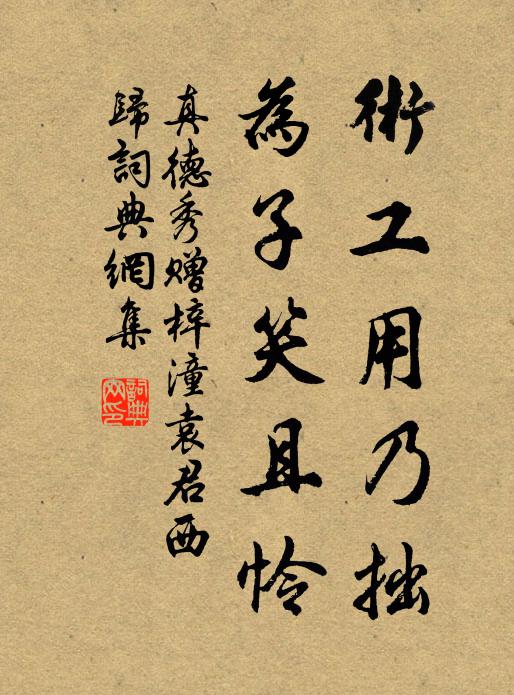 術工用乃拙
為子笑且怜
真德秀贈梓潼袁君西
歸詞典網集
詞典
网印